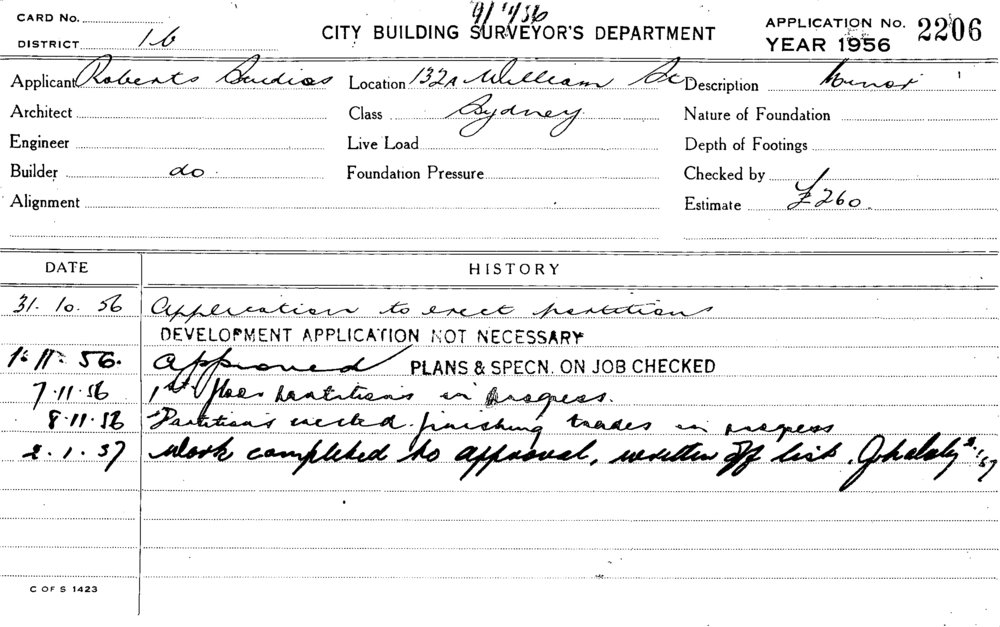 CARD No.
9/11/56
CITY BUILDING SURVEYOR'S DEPARTMENT
APPLICATION No. 2206
DISTRICT 16
YEAR 1956
Applicant Roberts Location 132A William St Description Minor
Architect Class Sydney Nature of Foundation
Engineer Live Load Depth of Footings
Builder do Foundation Pressure Checked by
Alignment Estimate £260.
DATE HISTORY
31.10.56 Application to erect partitions
DEVELOPMENT APPLICATION NOT NECESSARY
1.11.56. Approved PLANS & SPECN. ON JOB CHECKED
7.11.56 1st floor partitions in progress.
8.11.56 Partitions erected finishing trades in progress
2.1.57 Work completed to approval, written off list. 2/1/57
C OF S 1423